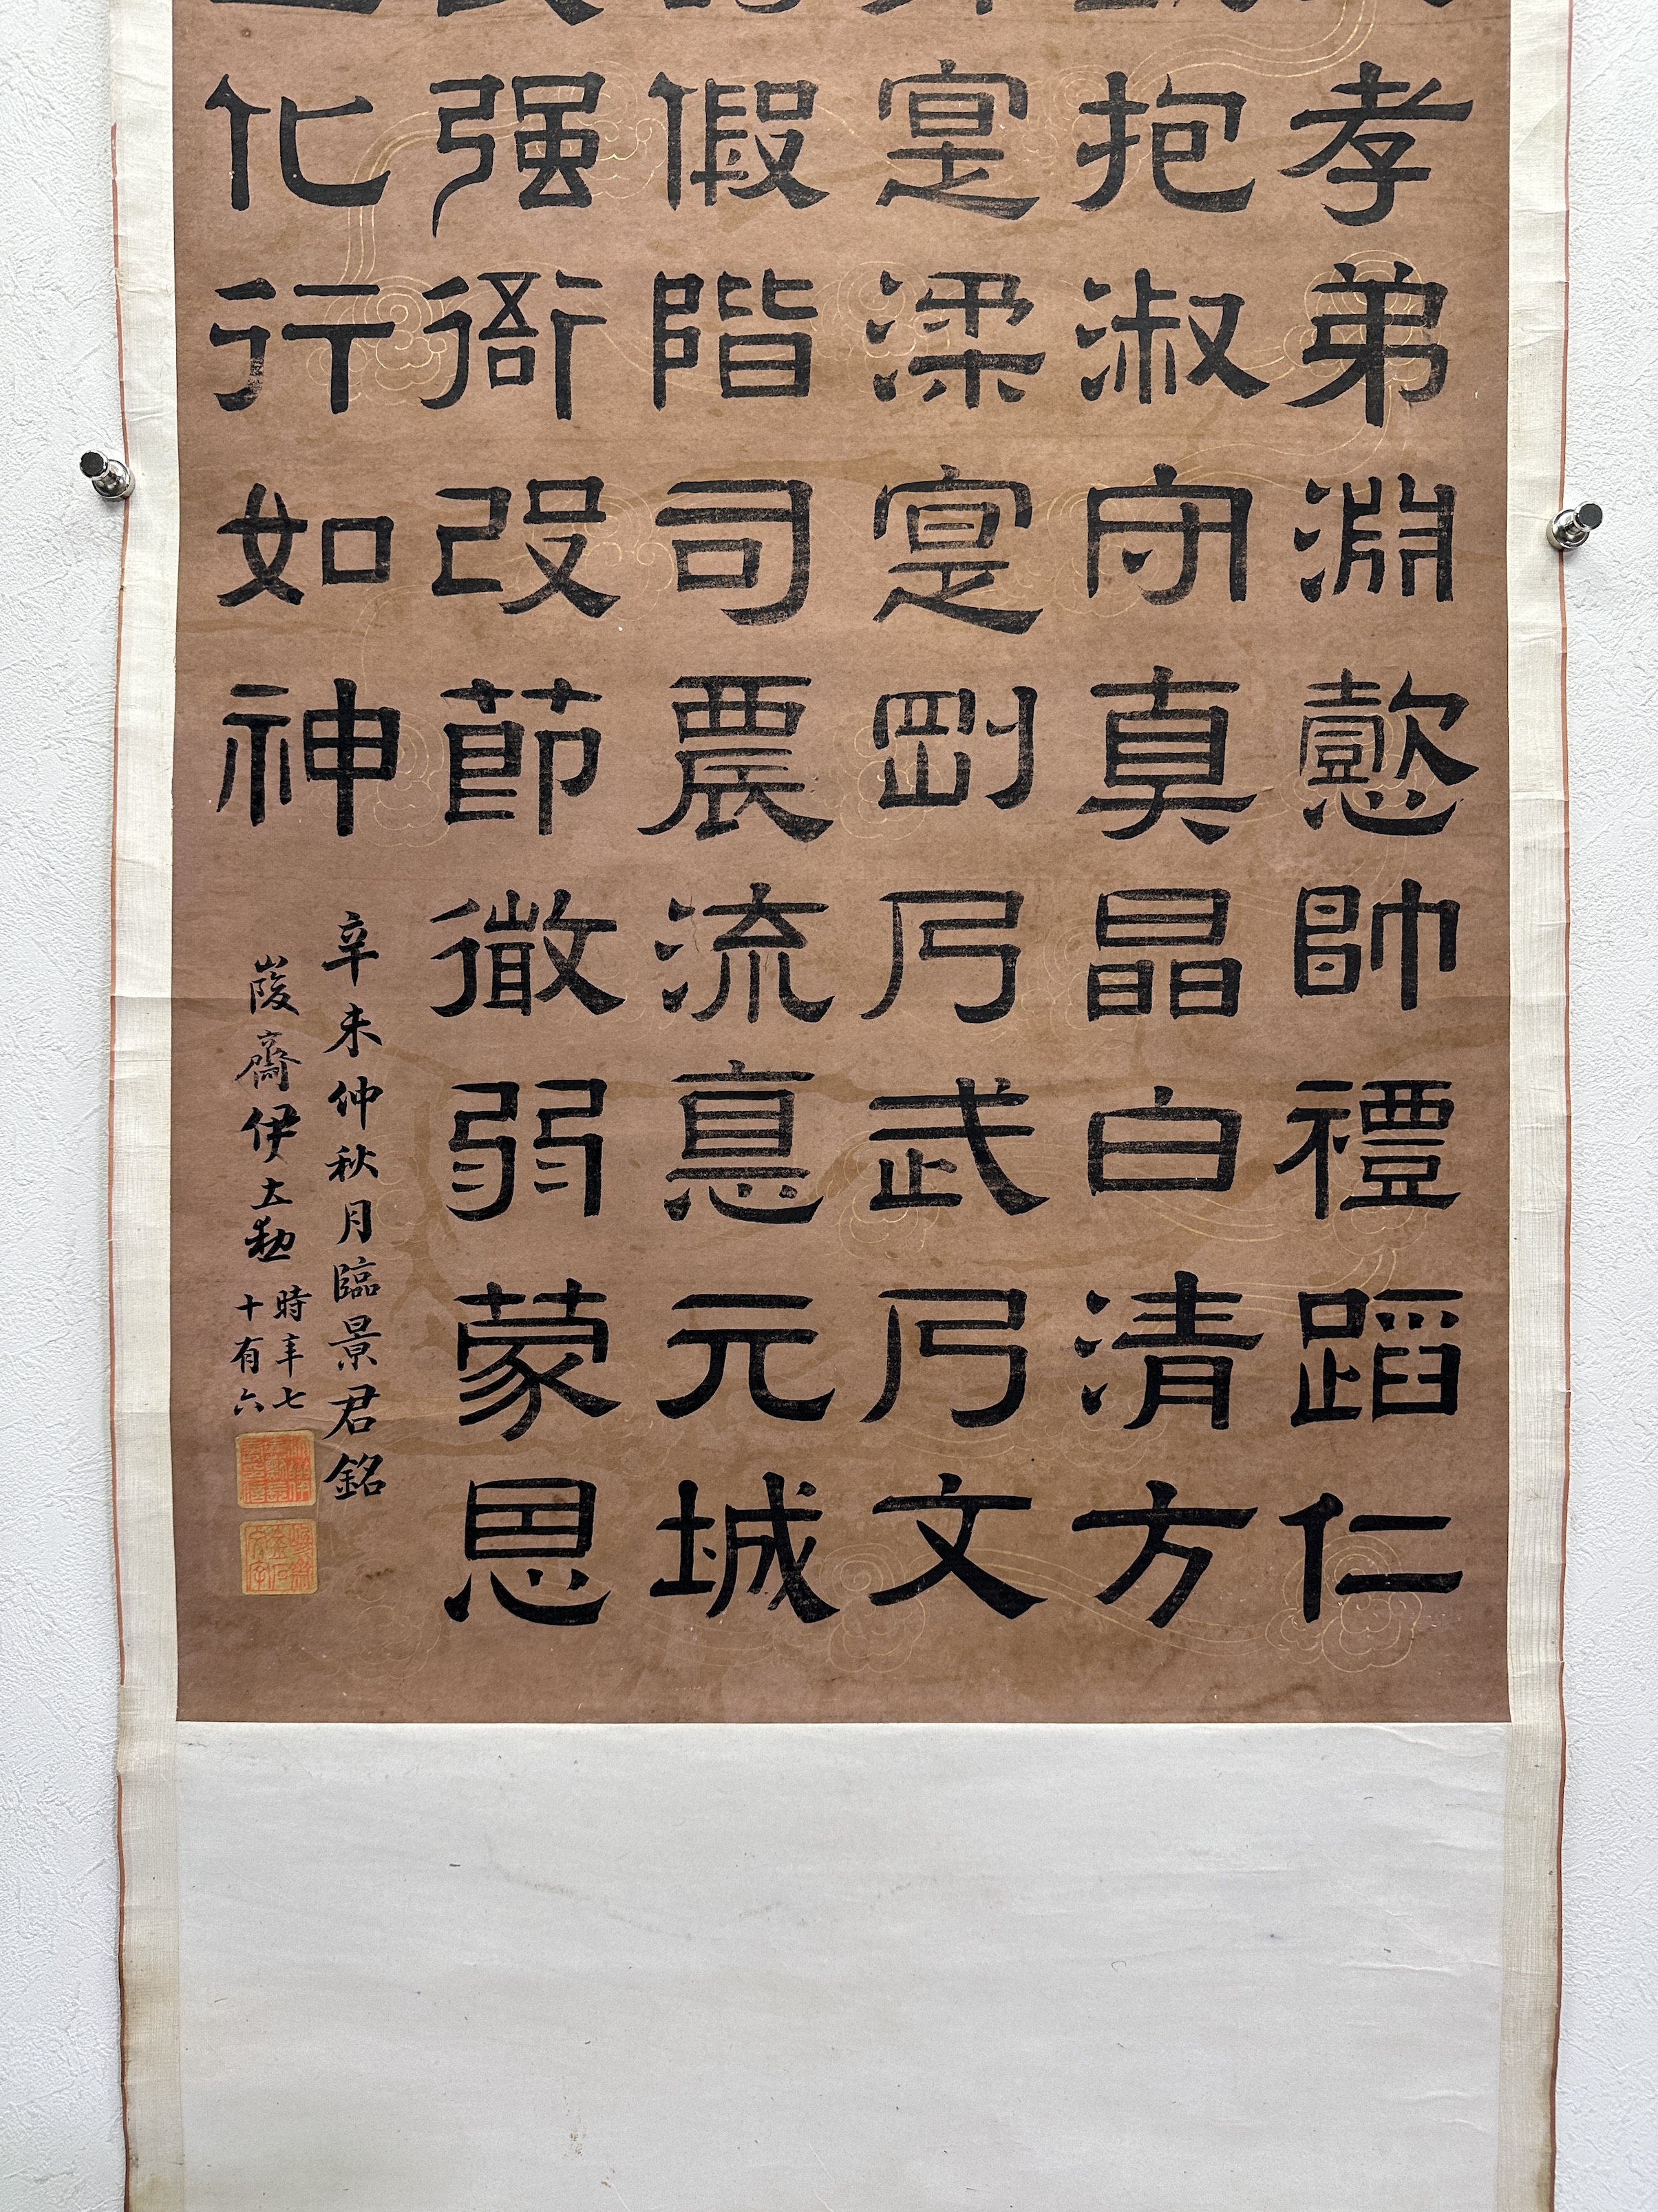 孝弟淵懿帥禮蹈仁
抱淑守真晶白清方
寔渘寔剛乃武乃文
假階司農流悳元城
强衙改節微弱蒙恩
化行如神
辛未仲秋月臨景君銘
峻齋伊立勳
時年七
十有六